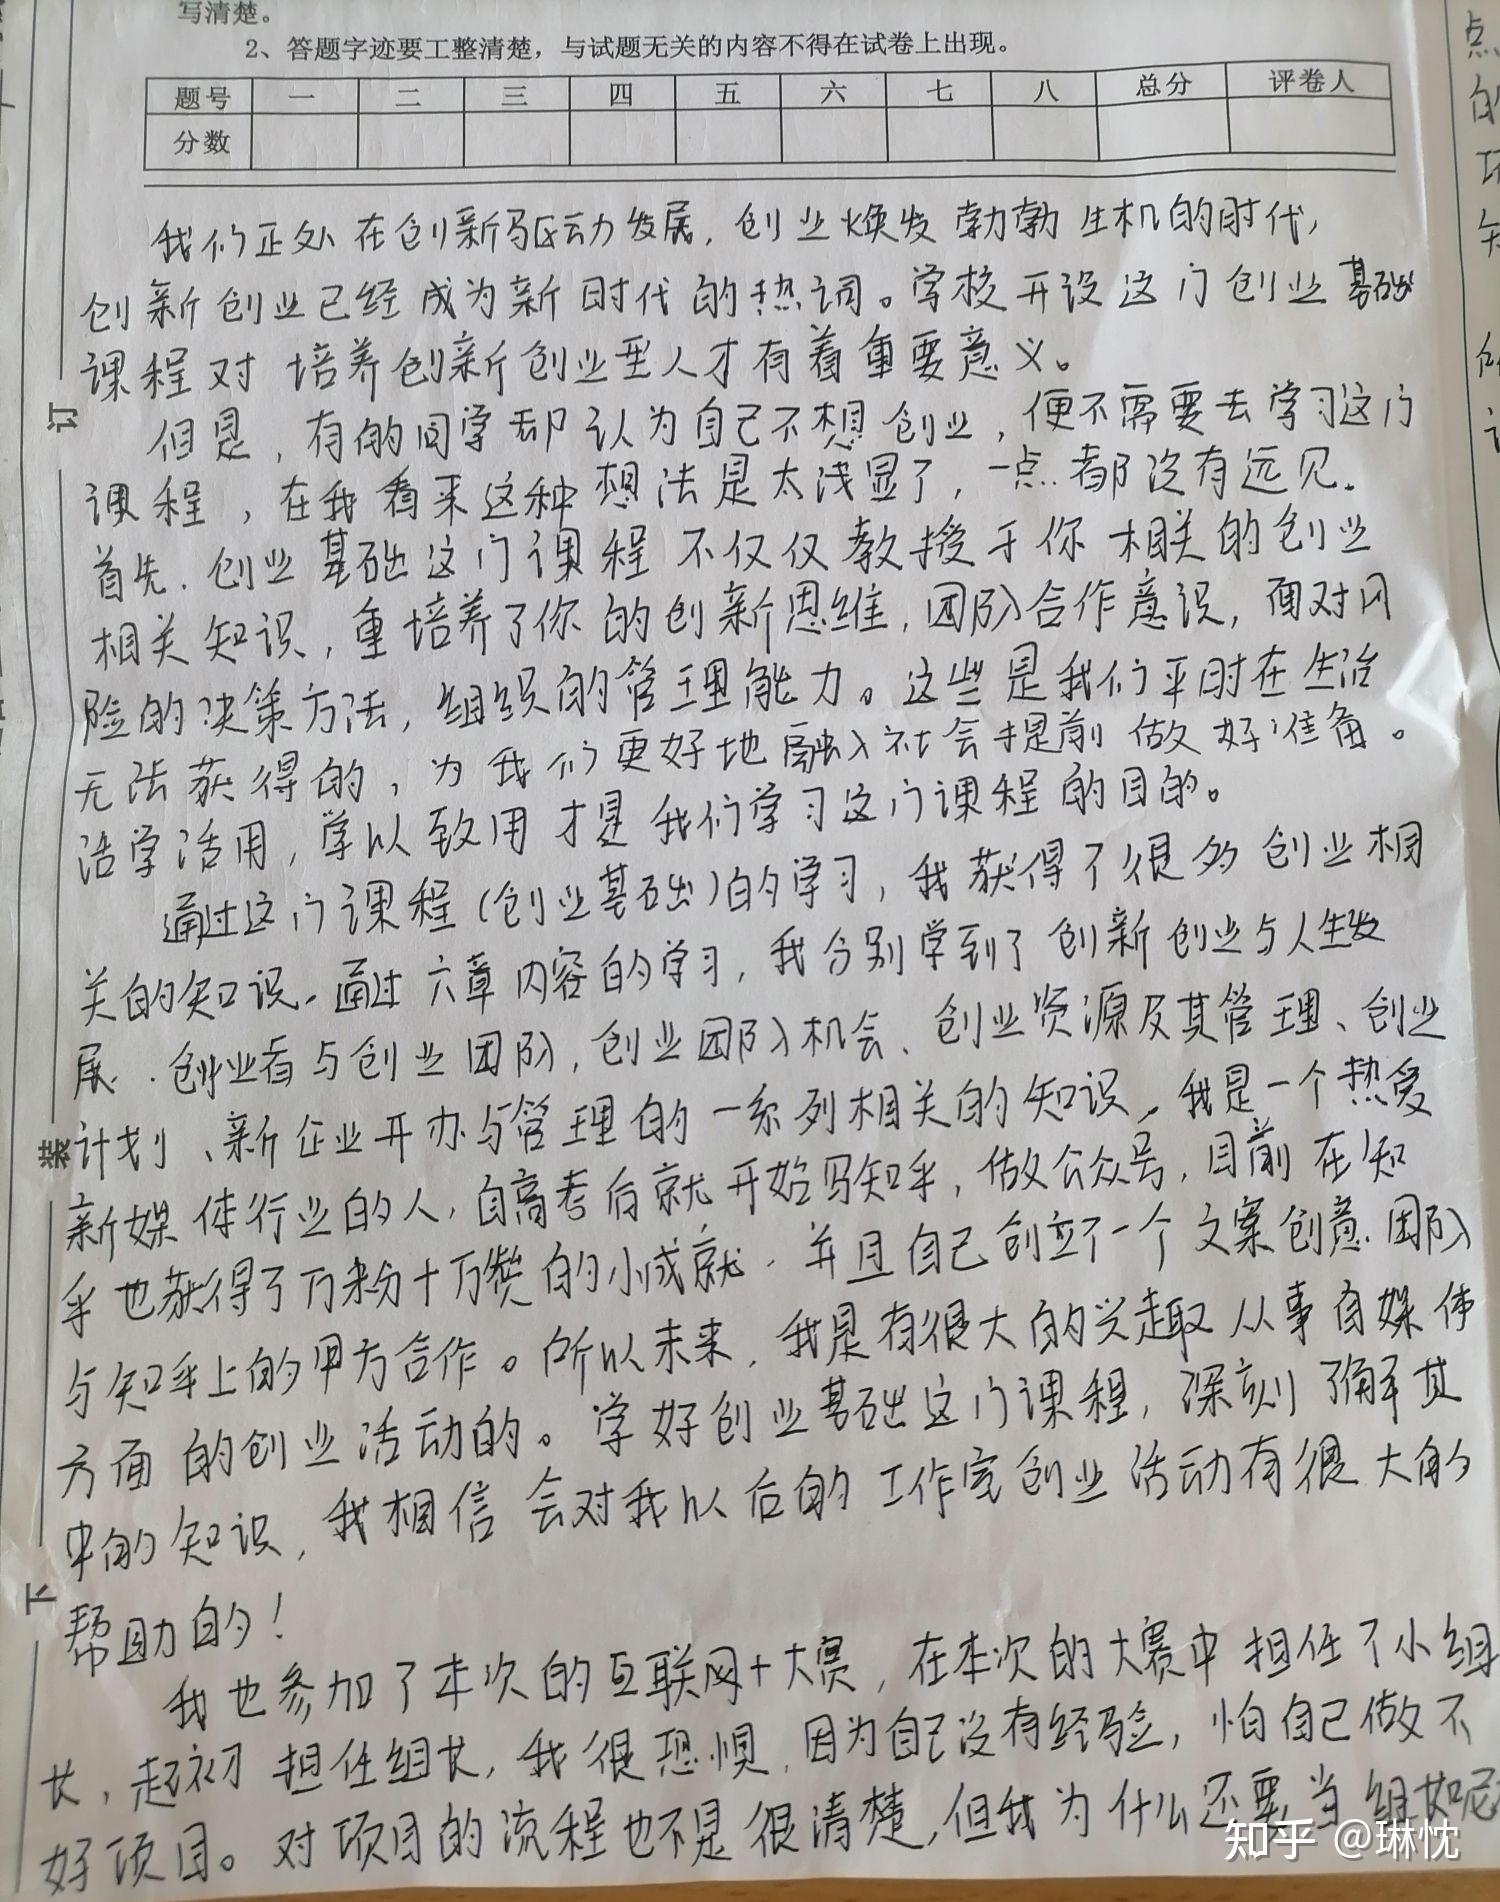 写清楚。
2、答题字迹要工整清楚，与试题无关的内容不得在试卷上出现。
题号 一 二 三 四 五 六 七 八 总分 评卷人
分数
我们正处在创新驱动力发展，创业焕发勃勃生机的时代，
创新创业已经成为新时代的热词。学校开设这门创业基础
课程对培养创新创业型人才有着重要意义。
但是，有的同学却认为自己不想创业，便不需要去学习这门
课程，在我看来这种想法是太浅显了，一点都没有远见。
首先，创业基础这门课程不仅仅教授于你相关的创业
相关知识，重培养了你的创新思维，团队合作意识，面对风
险的决策方法，组织的管理能力。这些是我们平时在生活
无法获得的，为我们更好地融入社会提前做好准备。
活学活用，学以致用才是我们学习这门课程的目的。
通过这门课程(创业基础)的学习，我获得了很多创业相
关的知识。通过六章内容的学习，我分别学到了创新创业与人生发
展、创业者与创业团队，创业团队机会、创业资源及其管理、创业
计划、新企业开办与管理的一系列相关的知识，我是一个热爱
新媒体行业的人，自高考后就开始写知乎，做公众号，目前在知
乎也获得了万粉十万赞的小成就，并且自己创立了一个文案创意团队
与知乎上的甲方合作。所以未来，我是有很大的兴趣从事自媒体
方面的创业活动的。学好创业基础这门课程，深刻了解其
中的知识，我相信会对我以后的工作室创业活动有很大的
帮助的！
我也参加了本次的互联网+大赛，在本次的大赛中担任了小组
长，起初担任组长，我很恐惧，因为自己没有经验，怕自己做不
好项目。对项目的流程也不是很清楚，但我为什么还要当组如呢
订
装
下
知乎 @琳忱